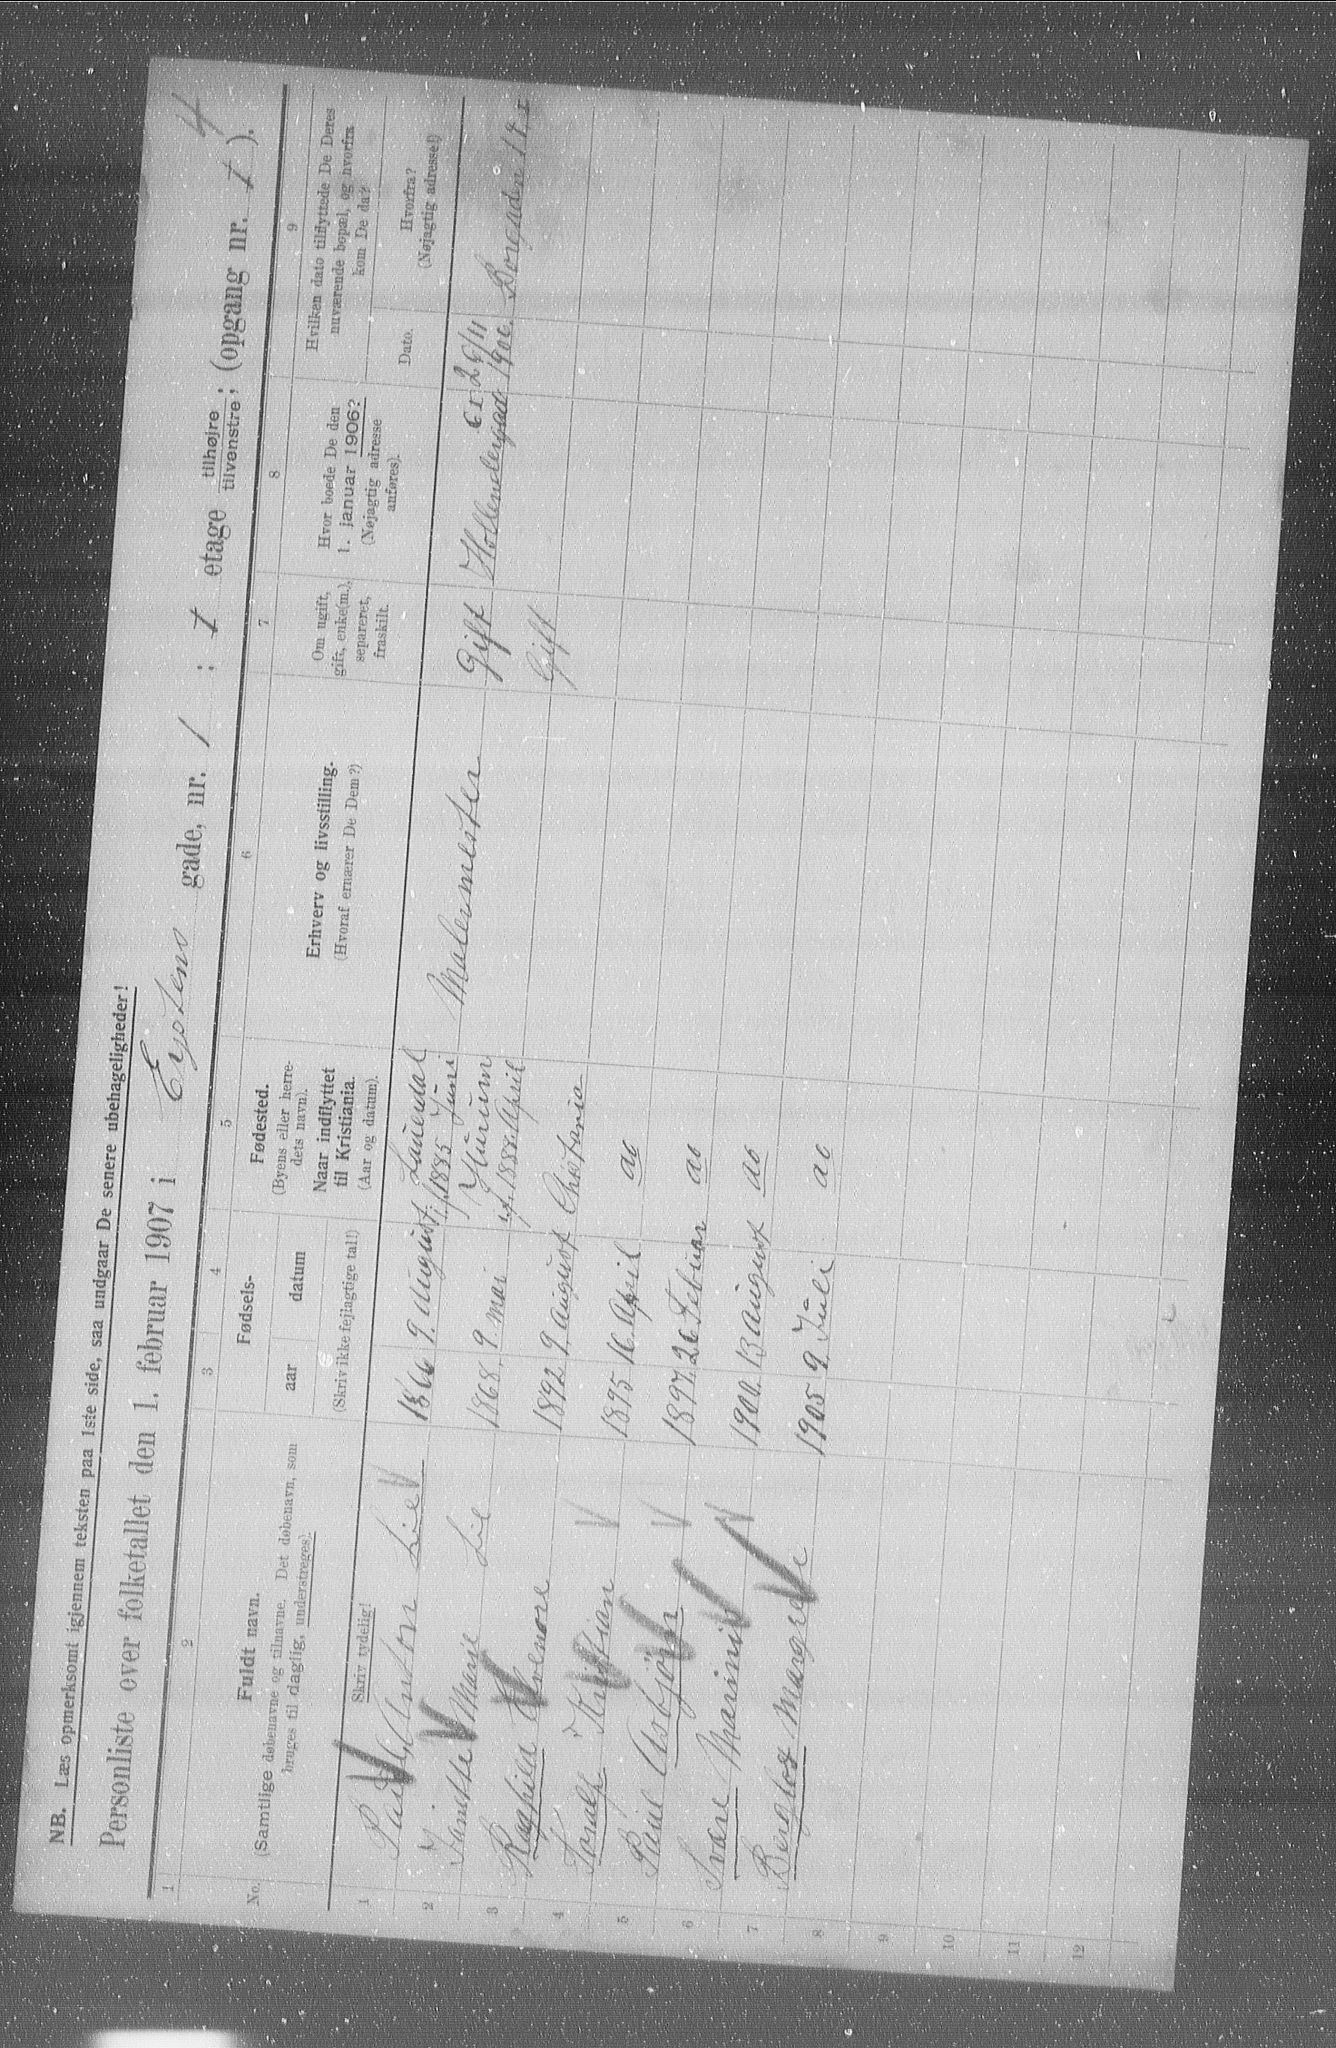 4
NB. Læs opmerksomt igjennem teksten paa 1ste side, saa undgaar De senere ubehageligheder!
Personliste over folketallet den 1. februar 1907 i Eystens gade, nr. 1 : 1 etage tilhøjre / tilvenstre; (opgang nr. 1).
1 2 3 4 5 6 7 8 9
No. Fuldt navn. (Samtlige døbenavne og tilnavne. Det døbenavn, som bruges til daglig, understreges). Skriv tydelig!
Fødsels- aar datum (Skriv ikke fejlagtige tal!)
Fødested. (Byens eller herredets navn). Naar indflyttet til Kristiania. (Aar og datum).
Erhverv og livsstilling. (Hvoraf ernærer De Dem?)
Om ugift, gift, enke(m.), separeret, fraskilt.
Hvor boede De den 1. januar 1906? (Nøjagtig adresse anføres).
Hvilken dato tilflyttede De Deres nuværende bopæl, og hvorfra kom De da? Dato. Hvorfra? (Nøjagtig adresse!)
1 Anton Lie 1866 9. August Lauerdal 1885 Juni Malermester Gift 26/11 1906.
2 Marie Lie 1868. 9. mai Hurum 1888 April Gift
3 Raghild 1892 9 august Christania
4 Kristian 1895 16 April do
5 Paul Asbjörn 1897. 26 Februar do
6 1900. 13 august do
7 Margrete 1905 9. Juli do
8
9
10
11
12